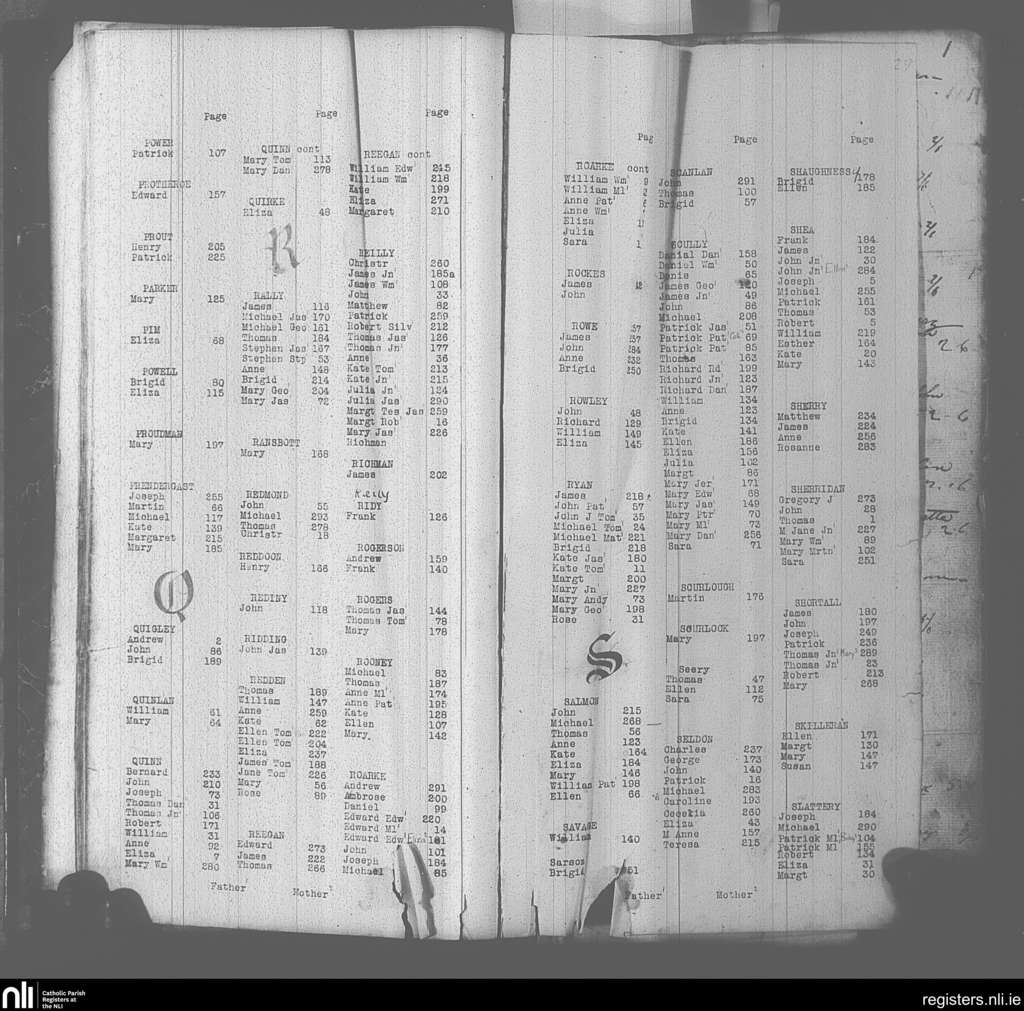 Page
POWER
Patrick 107
PROTHEROE
Edward 157
PROUT
Henry 205
Patrick 225
PARKER
Mary 125
PIM
Eliza 68
POWELL
Brigid 80
Eliza 115
PROUDMAN
Mary 197
PRENDERGAST
Joseph 255
Martin 66
Michael 117
Kate 139
Margaret 215
Mary 185
Q
QUIGLEY
Andrew 2
John 86
Brigid 189
QUINLAN
William 61
Mary 64
QUINN
Bernard 233
John 210
Joseph 73
Thomas Dan 31
Thomas Jn' 106
Robert 171
William 31
Anne 92
Eliza 7
Mary Wm 280
Page
QUINN cont
Mary Tom 113
Mary Dan 278
QUIRKE
Eliza 48
R
RALLY
James 116
Michael Jas 170
Michael Geo 161
Thomas 184
Stephen Jas' 167
Stephen Stp 53
Anne 148
Brigid 214
Mary Geo 204
Mary Jas 72
RANSBOTT
Mary 168
REDMOND
John 55
Michael 293
Thomas 278
Christr 18
REDDOON
Henry 166
REDINY
John 118
RIDDING
John Jas 139
REDDEN
Thomas 189
William 147
Anne 259
Kate 62
Ellen Tom 222
Ellen Tom 204
Eliza 237
James Tom 188
Jane Tom' 226
Mary 56
Rose 89
REEGAN
Edward 273
James 222
Thomas 266
Father'
Page
REEGAN cont
William Edw' 245
William Wm' 218
Kate 199
Eliza 271
Margaret 210
REILLY
Christr 260
James Jn' 185a
James Wm' 108
John 33
Matthew 82
Patrick 259
Robert Silv 212
Thomas Jas 126
Thomas Jn' 177
Anne 36
Kate Tom' 213
Kate Jn' 215
Julia Jn' 124
Julia Jas 290
Margt Tes Jas 259
Margt Rob' 16
Mary Jas' 226
Richman
RICHMAN
James 202
Kelly
RIDY
Frank 126
ROGERSON
Andrew 159
Frank 140
ROGERS
Thomas Jas 144
Thomas Tom' 78
Mary 178
ROONEY
Michael 83
Thomas 187
Anne Ml' 174
Anne Pat' 195
Kate 128
Ellen 107
Mary. 142
ROARKE
Andrew 291
Ambrose 200
Daniel 99
Edward Edw' 220
Edward Ml' 14
Edward Edw' 181
John 101
Joseph 184
Michael 85
Mother'
Pag
ROARKE cont
William Wm' 9
William Ml'
Anne Pat'
Anne Wm'
Eliza
Julia
Sara 1
ROCKES
James
John
ROWE 57
James 237
John 284
Anne 232
Brigid 250
ROWLEY
John 48
Richard 129
William 149
Eliza 145
RYAN
James 218
John Pat' 57
John J Tom' 35
Michael Tom' 24
Michael Mat' 221
Brigid 218
Kate Jas' 180
Kate Tom' 11
Margt 200
Mary Jn' 227
Mary Andy 73
Mary Geo' 198
Rose 31
S
SALMON
John 215
Michael 268
Thomas 56
Anne 123
Kate 164
Eliza 184
Mary 146
William Pat 198
Ellen 66
SAVAGE
William 140
Sarson
Brigid 51
Father'
Page
SCANLAN
John 291
Thomas 100
Brigid 57
SCULLY
Danial Dan' 158
Daniel Wm' 50
Denis 65
James Geo' 120
James Jn' 49
John 86
Michael 208
Patrick Jas' 51
Patrick Pat' 69
Patrick Pat 85
Thomas 163
Richard Rd' 199
Richard Jn' 123
Richard Dan' 187
William 134
Anne 123
Brigid 134
Kate 141
Ellen 186
Eliza 156
Julia 102
Margt 86
Mary Jer 171
Mary Edw' 68
Mary Jas' 149
Mary Ptr' 70
Mary Ml' 73
Mary Dan' 256
Sara 71
SCURLOUGH
Martin 176
SCURLOCK
Mary 197
Seery
Thomas 47
Ellen 112
Sara 75
SELDON
Charles 237
George 173
John 140
Patrick 16
Michael 283
Caroline 193
Cecelia 260
Eliza 43
M Anne 157
Teresa 215
Mother'
Page
SHAUGHNESSY
Brigid 178
Ellen 185
SHEA
Frank 184
James 122
John Jn' 30
John Jn' [Ellen] 284
Joseph 5
Michael 255
Patrick 161
Thomas 53
Robert 5
William 219
Esther 164
Kate 20
Mary 143
SHERRY
Matthew 234
James 224
Anne 256
Rosanne 283
SHERRIDAN
Gregory J' 273
John 28
Thomas 1
M Jane Jn' 227
Mary Wm' 89
Mary Mrtn' 102
Sara 251
SHORTALL
James 180
John 197
Joseph 249
Patrick 236
Thomas Jn' [Mary] 289
Thomas Jn' 23
Robert 213
Mary 268
SKILLERAN
Ellen 171
Margt 130
Mary 147
Susan 147
SLATTERY
Joseph 184
Michael 290
Patrick Ml' 104
Patrick Ml 155
Robert 134
Eliza 31
Margt 30
nli
Catholic Parish
Registers at
the NLI
registers.nli.ie